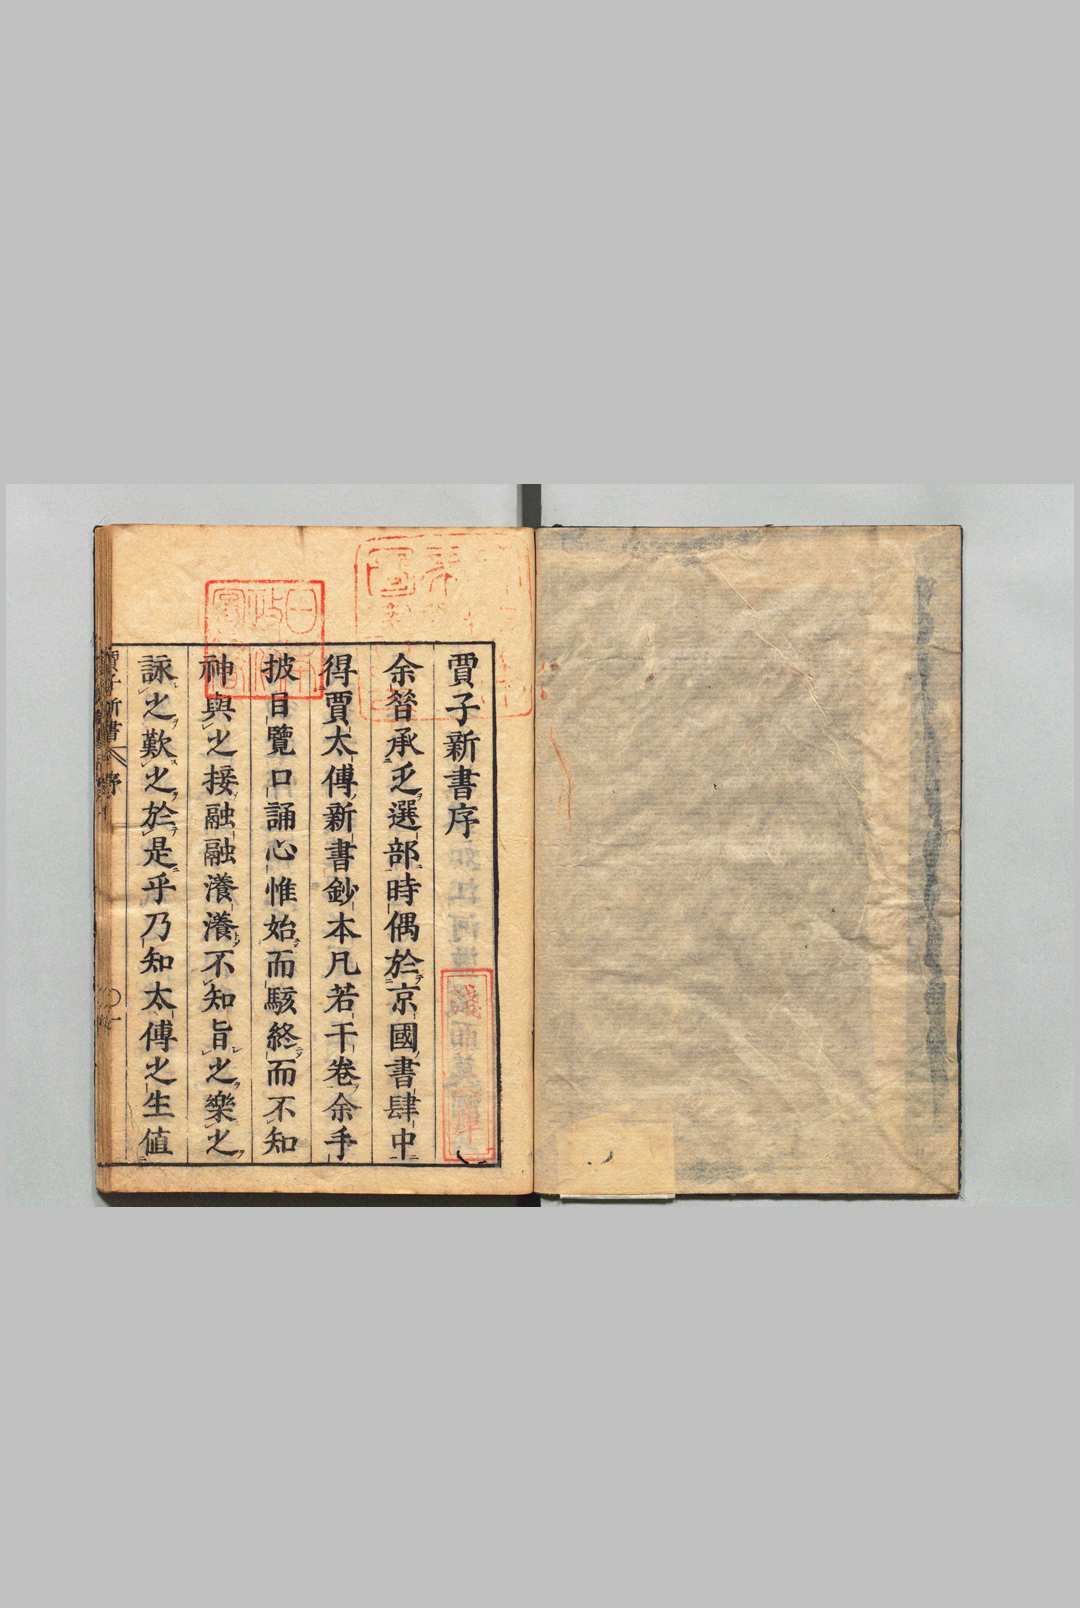 賈子新書序
余嘗承乏選部時偶於京國書肆中
得賈太傅新書鈔本凡若干卷余手
披目覽口誦心惟始而駭終而不知
神與之接融融瀁瀁不知旨之樂之
詠之歎之於是乎乃知太傅之生值
賈子新書 序